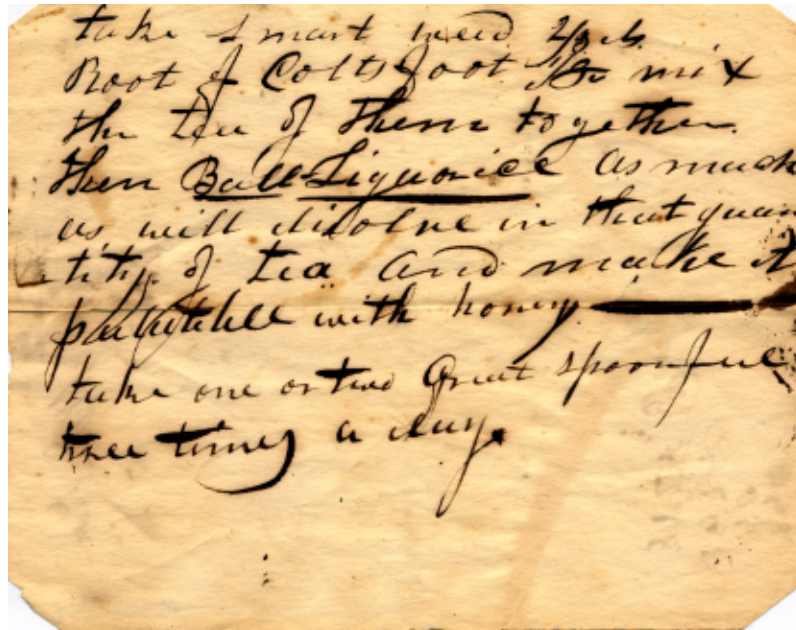 take Smart weed 2/3 lb
Root of Coltsfoot 1/3 mix
the tea of them together
then Ball Liquorice as much
as will disolve in that quan
tity of tea and make it
palatable with honey
take one or two Great spoonful
three times a day.